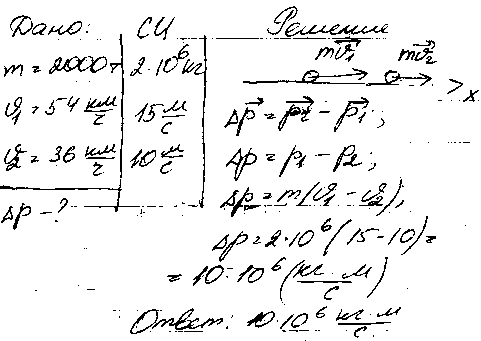 Дано:
m = 2000т
υ₁ = 54 км/ч
υ₂ = 36 км/ч
Δp - ?
СИ
2·10⁶кг
15 м/с
10 м/с
Решение
mυ⃗₁ mυ⃗₂
x
Δp⃗ = p⃗₂ - p⃗₁;
Δp = p₁ - p₂;
Δp = m(υ₁ - υ₂);
Δp = 2·10⁶(15-10) =
= 10·10⁶ (кг·м/с)
Ответ: 10·10⁶ кг·м/с